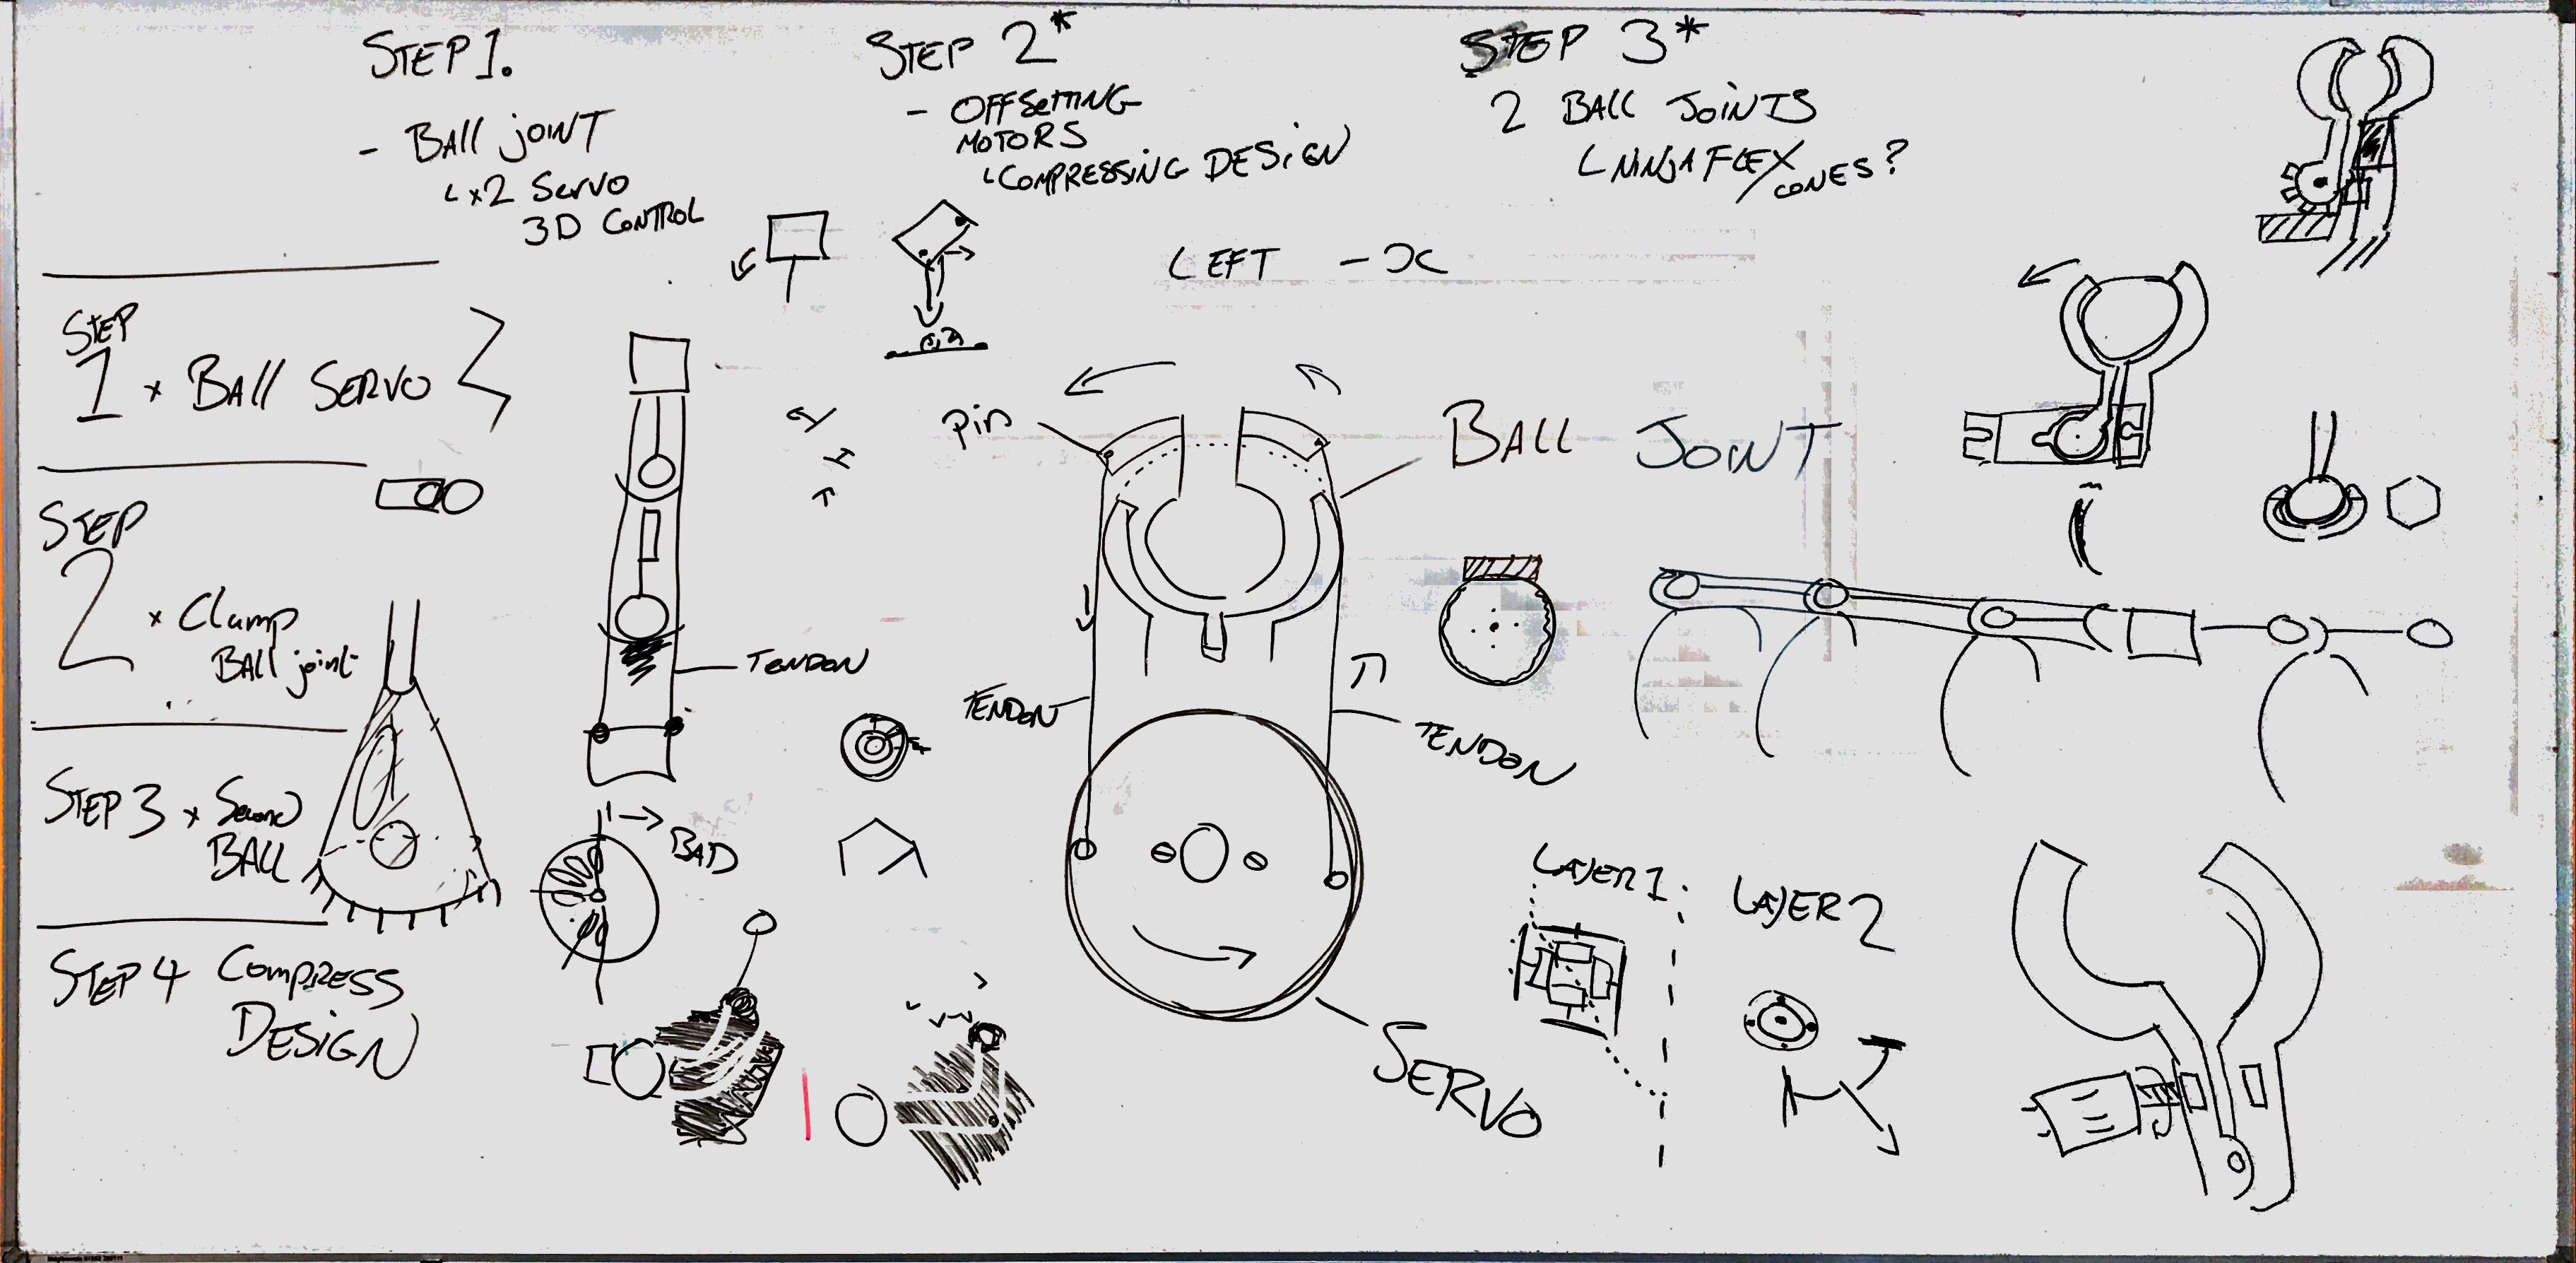 STEP 1.
- BALL JOINT
x2 SERVO
3D CONTROL
STEP 2*
- OFFSETTING
MOTORS
COMPRESSING DESIGN
STEP 3*
2 BALL JOINTS
NINJAFLEX
CONES?
LEFT -x
STEP
1 x BALL SERVO
STEP
2 x Clamp
BALL joint
STEP 3 x Second
BALL
STEP 4 COMPRESS
DESIGN
TENDON
BAD
pin
BALL JOINT
TENDON
TENDON
SERVO
LAYER 1
LAYER 2